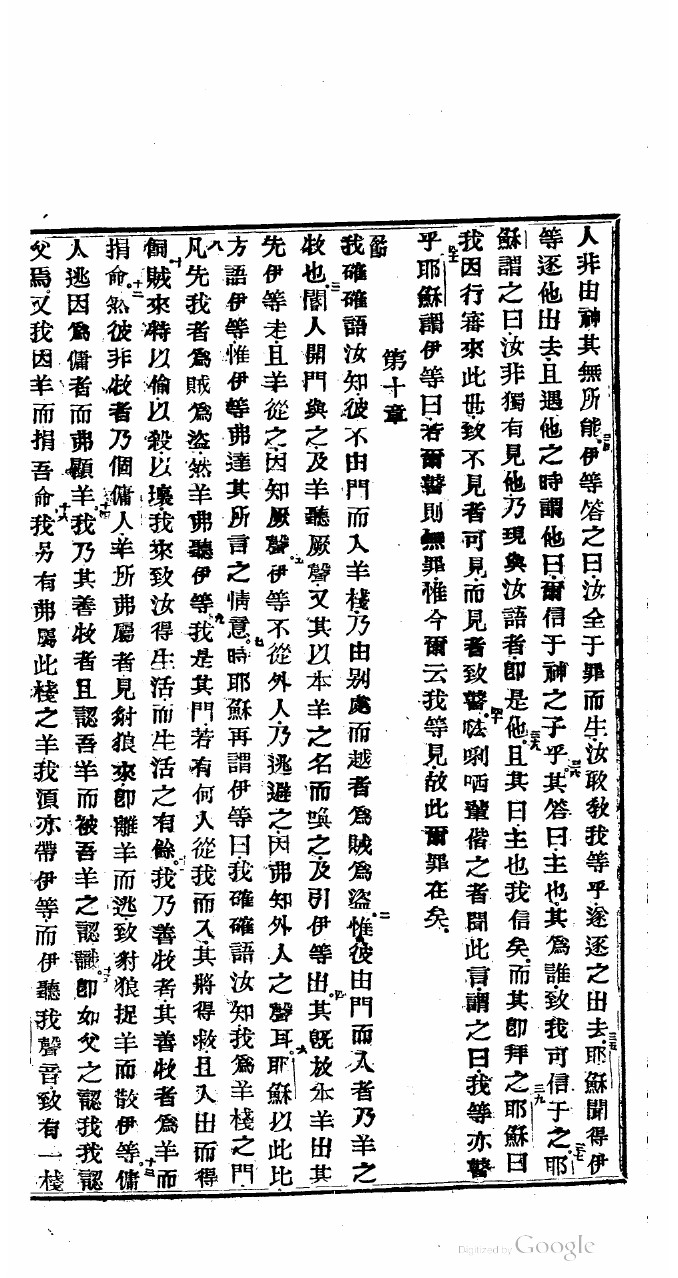 人非由神其無所能伊等答之曰汝全于罪而生汝敢教我等乎遂逐之出去耶穌聞得伊
等逐他出去且遇他之時謂他曰爾信于神之子乎其答曰主也其為誰致我可信于之耶
穌謂之曰汝非獨有見他乃現與汝語者即是他且其曰主也我信矣而其即拜之耶穌曰
我因行審來此世致不見者可見而見者致瞽㗲唎哂輩偕之者聞此言謂之曰我等亦瞽
乎耶穌謂伊等曰若爾瞽則無罪惟今爾云我等見故此爾罪在矣
第十章
我確確語汝知彼不由門而入羊棧乃由別處而越者為賊為盜惟彼由門而入者乃羊之
牧也閽人開門與之及羊聽厥聲又其以本羊之名而喚之及引伊等出其既放本羊出其
先伊等走且羊從之因知厥聲伊等不從外人乃逃避之因弗知外人之聲耳耶穌以此比
方語伊等惟伊等弗達其所言之情意時耶穌再謂伊等曰我確確語汝知我為羊棧之門
凡先我者為賊為盜然羊弗聽伊等我是其門若有何人從我而入其將得救且入出而得
飼賊來特以偷以殺以壞我來致汝得生活而生活之有餘我乃善牧者其善牧者為羊而
捐命然彼非牧者乃個傭人羊所弗屬者見豺狼來即離羊而逃致豺狼捉羊而散伊等傭
人逃因為傭者而弗顧羊我乃其善牧者且認吾羊而被吾羊之認識即如父之認我我認
父焉又我因羊而捐吾命我另有弗屬此棧之羊我須亦帶伊等而伊聽我聲音致有一棧
Digitized by Google